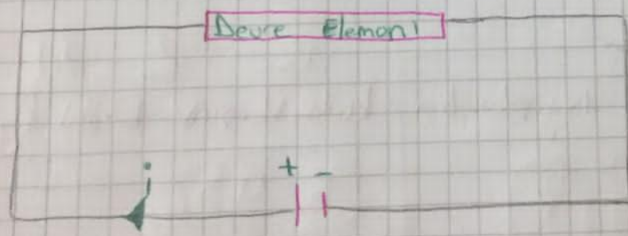 Devre Elemanı
i
+ -